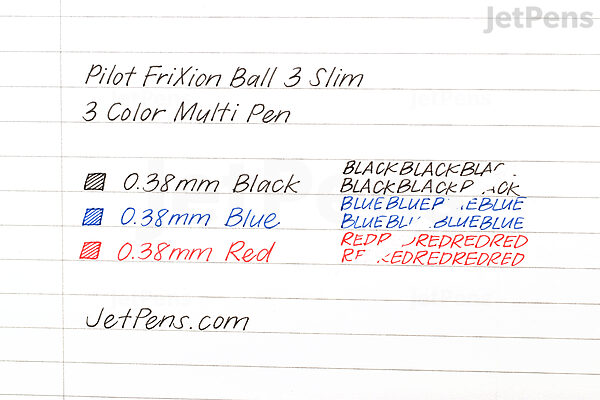 JetPens
Pilot FriXion Ball 3 Slim
3 Color Multi Pen
0.38mm Black
BLACKBLACKBLAC
BLACKBLACK
0.38mm Blue
BLUEBLUE
BLUE BLUEBLUE
0.38mm Red
RED REDREDRED
REDREDREDRED
JetPens.com